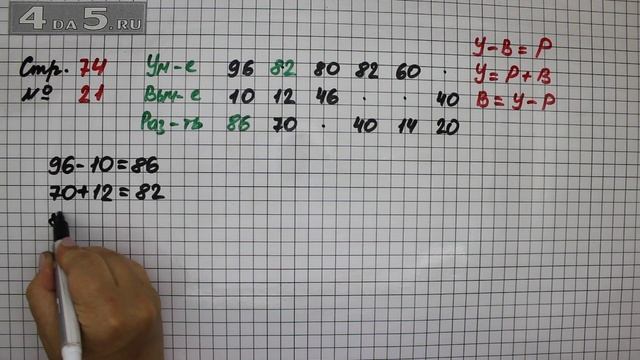 4DA5.RU
Стр. 74 Ум-е 96 82 80 82 60 .
№ 21 Выч-е 10 12 46 . . 40
Раз-ть 86 70 . 40 14 20
У-В=Р
У=Р+В
В=У-Р
96-10=86
70+12=82